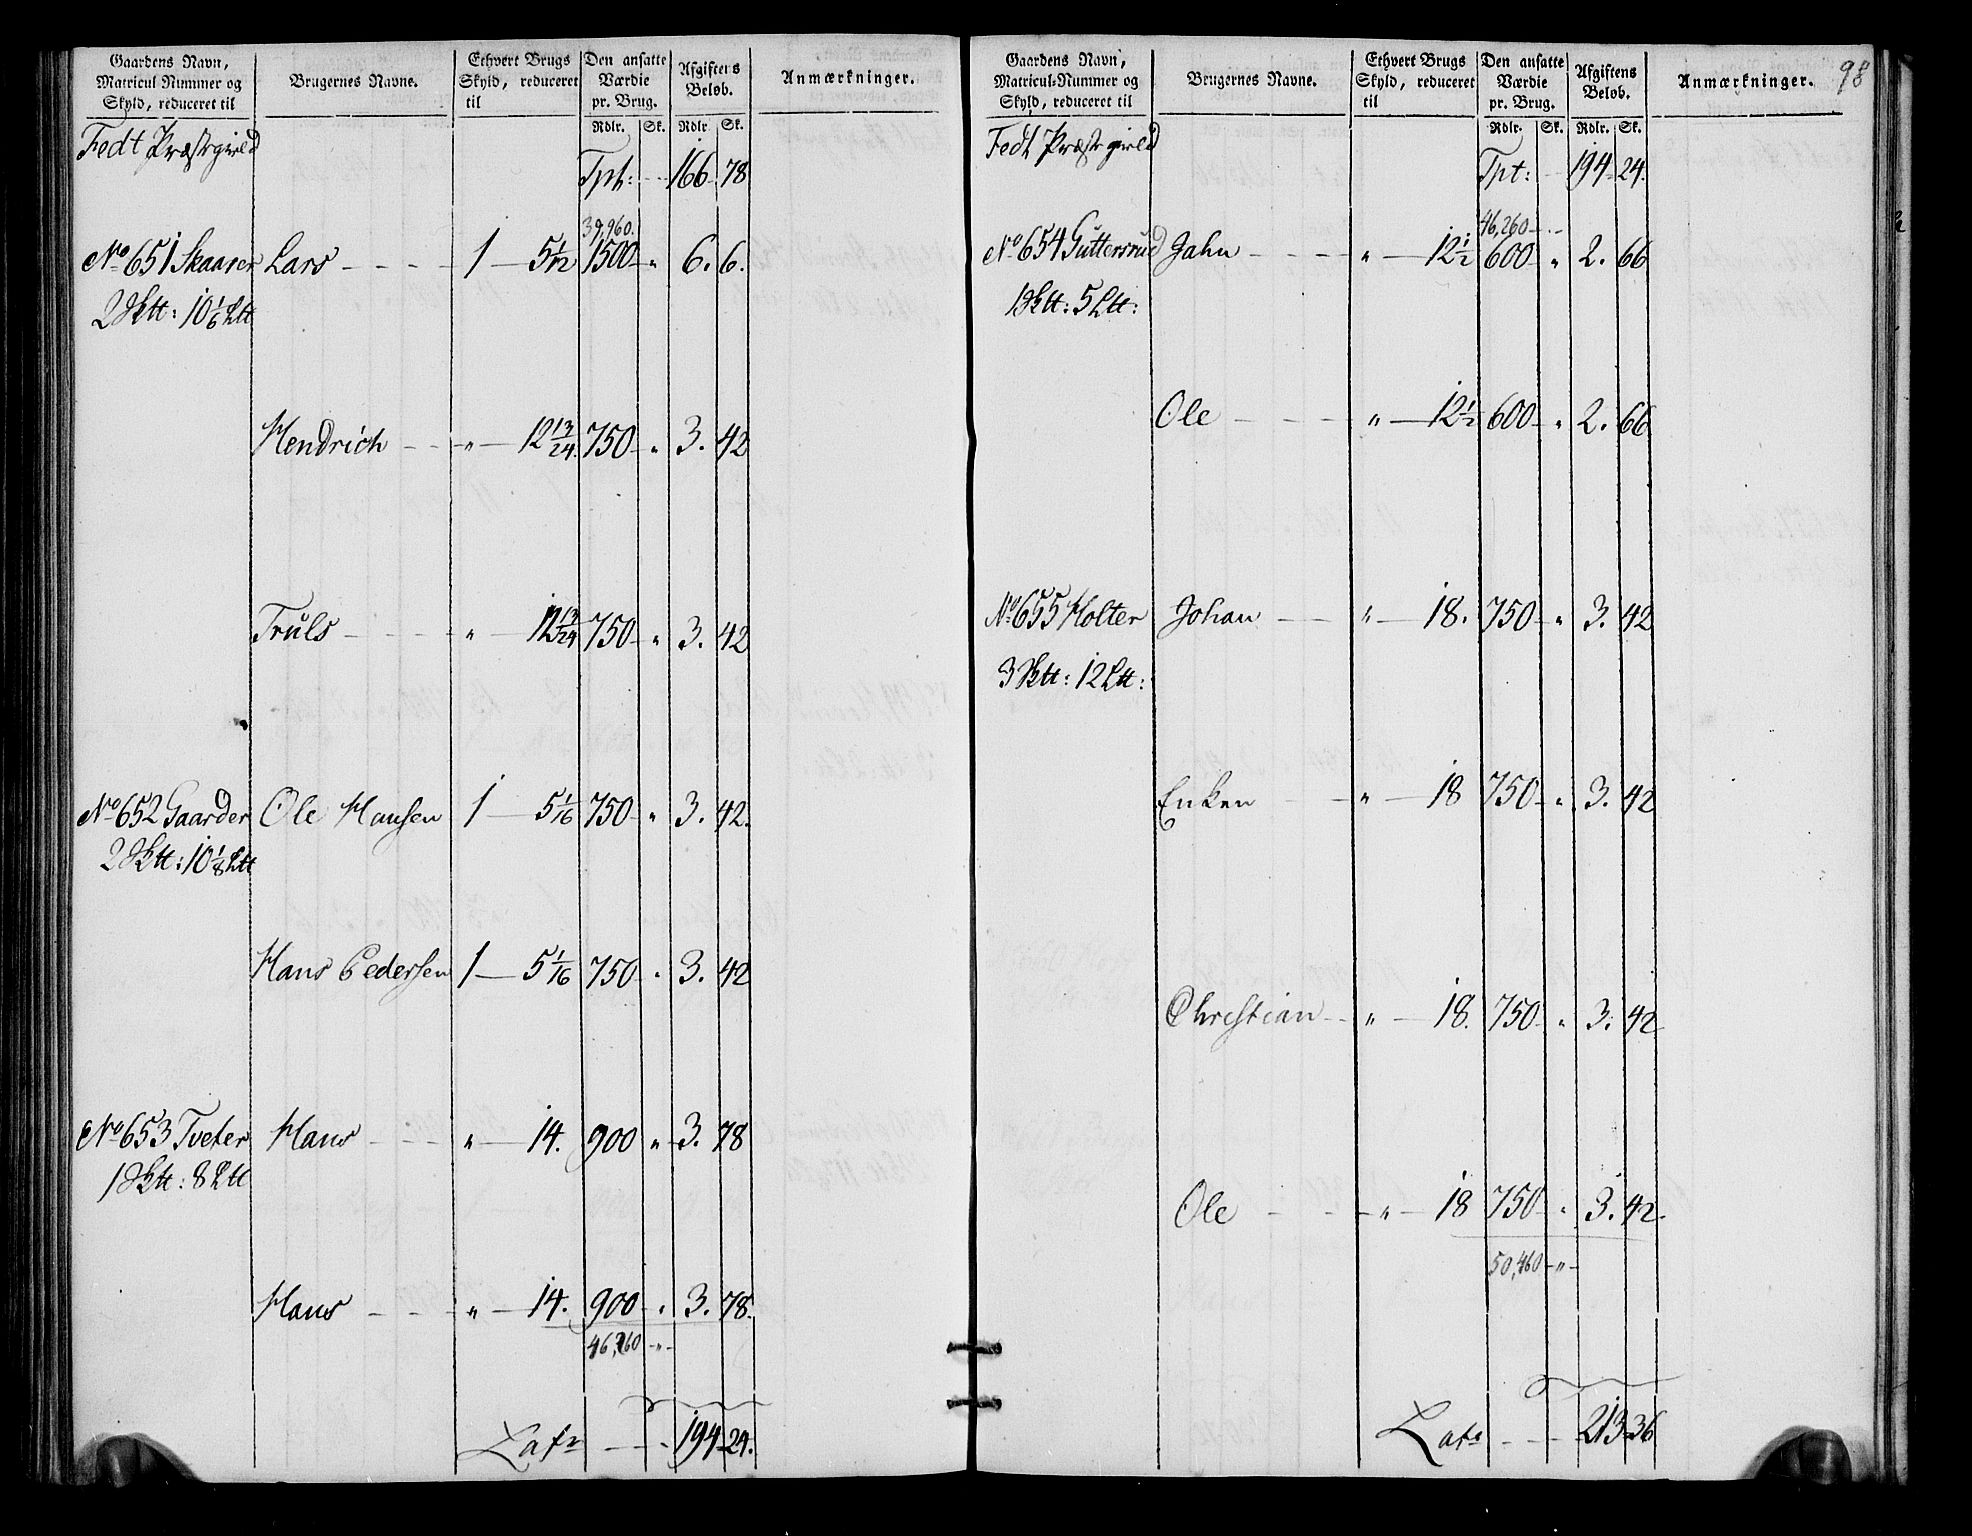 Gaardens Navn, Matricul Nummer og Skyld, reduceret til
Brugernes Navne.
Ethvert Brugs Skyld, reduceret til
Den ansatte Værdie pr. Brug.
Afgiftens Beløb.
Anmærkninger.
Rdlr. Sk. Rdlr. Sk.
Fedt Præstegield
Tpt: 166 78
39,960.
No 651 Skaarer Lars 1 5 1/12 1500 " 6. 6.
2 Sktt: 10 1/6 Ltt
Hendrich " 12 13/24. 750 " 3. 42
Truls " 12 13/24 750 " 3. 42
No 652 Gaarder Ole Hansen 1 5 1/16 750 " 3. 42.
2 Sktt: 10 1/8 Ltt
Hans Pedersen 1 5 1/16 750 " 3. 42
No 653 Tveter Hans " 14. 900 " 3. 78
1 Sktt: 8 Ltt
Hans " 14. 900 " 3. 78.
46,260 "
Latr 194 24.
98
Gaardens Navn, Matricul-Nummer og Skyld, reduceret til
Brugernes Navne.
Ethvert Brugs Skyld, reduceret til
Den ansatte Værdie pr. Brug.
Afgiftens Beløb.
Anmærkninger.
Rdlr. Sk. Rdlr. Sk.
Fedt Præstegield
Tpt: 194 24.
46,260
No 654 Guttersrud Jahn " 12 1/2 600 " 2. 66
1 Sktt: 5 Ltt:
Ole " 12 1/2 600 " 2. 66
No 655 Holter Johan " 18. 750 " 3. 42
3 Sktt: 12 Ltt:
Enken " 18 750 " 3. 42
Christian " 18. 750 " 3. 42
Ole " 18 750 " 3. 42.
50,460 "
Latr 213 36